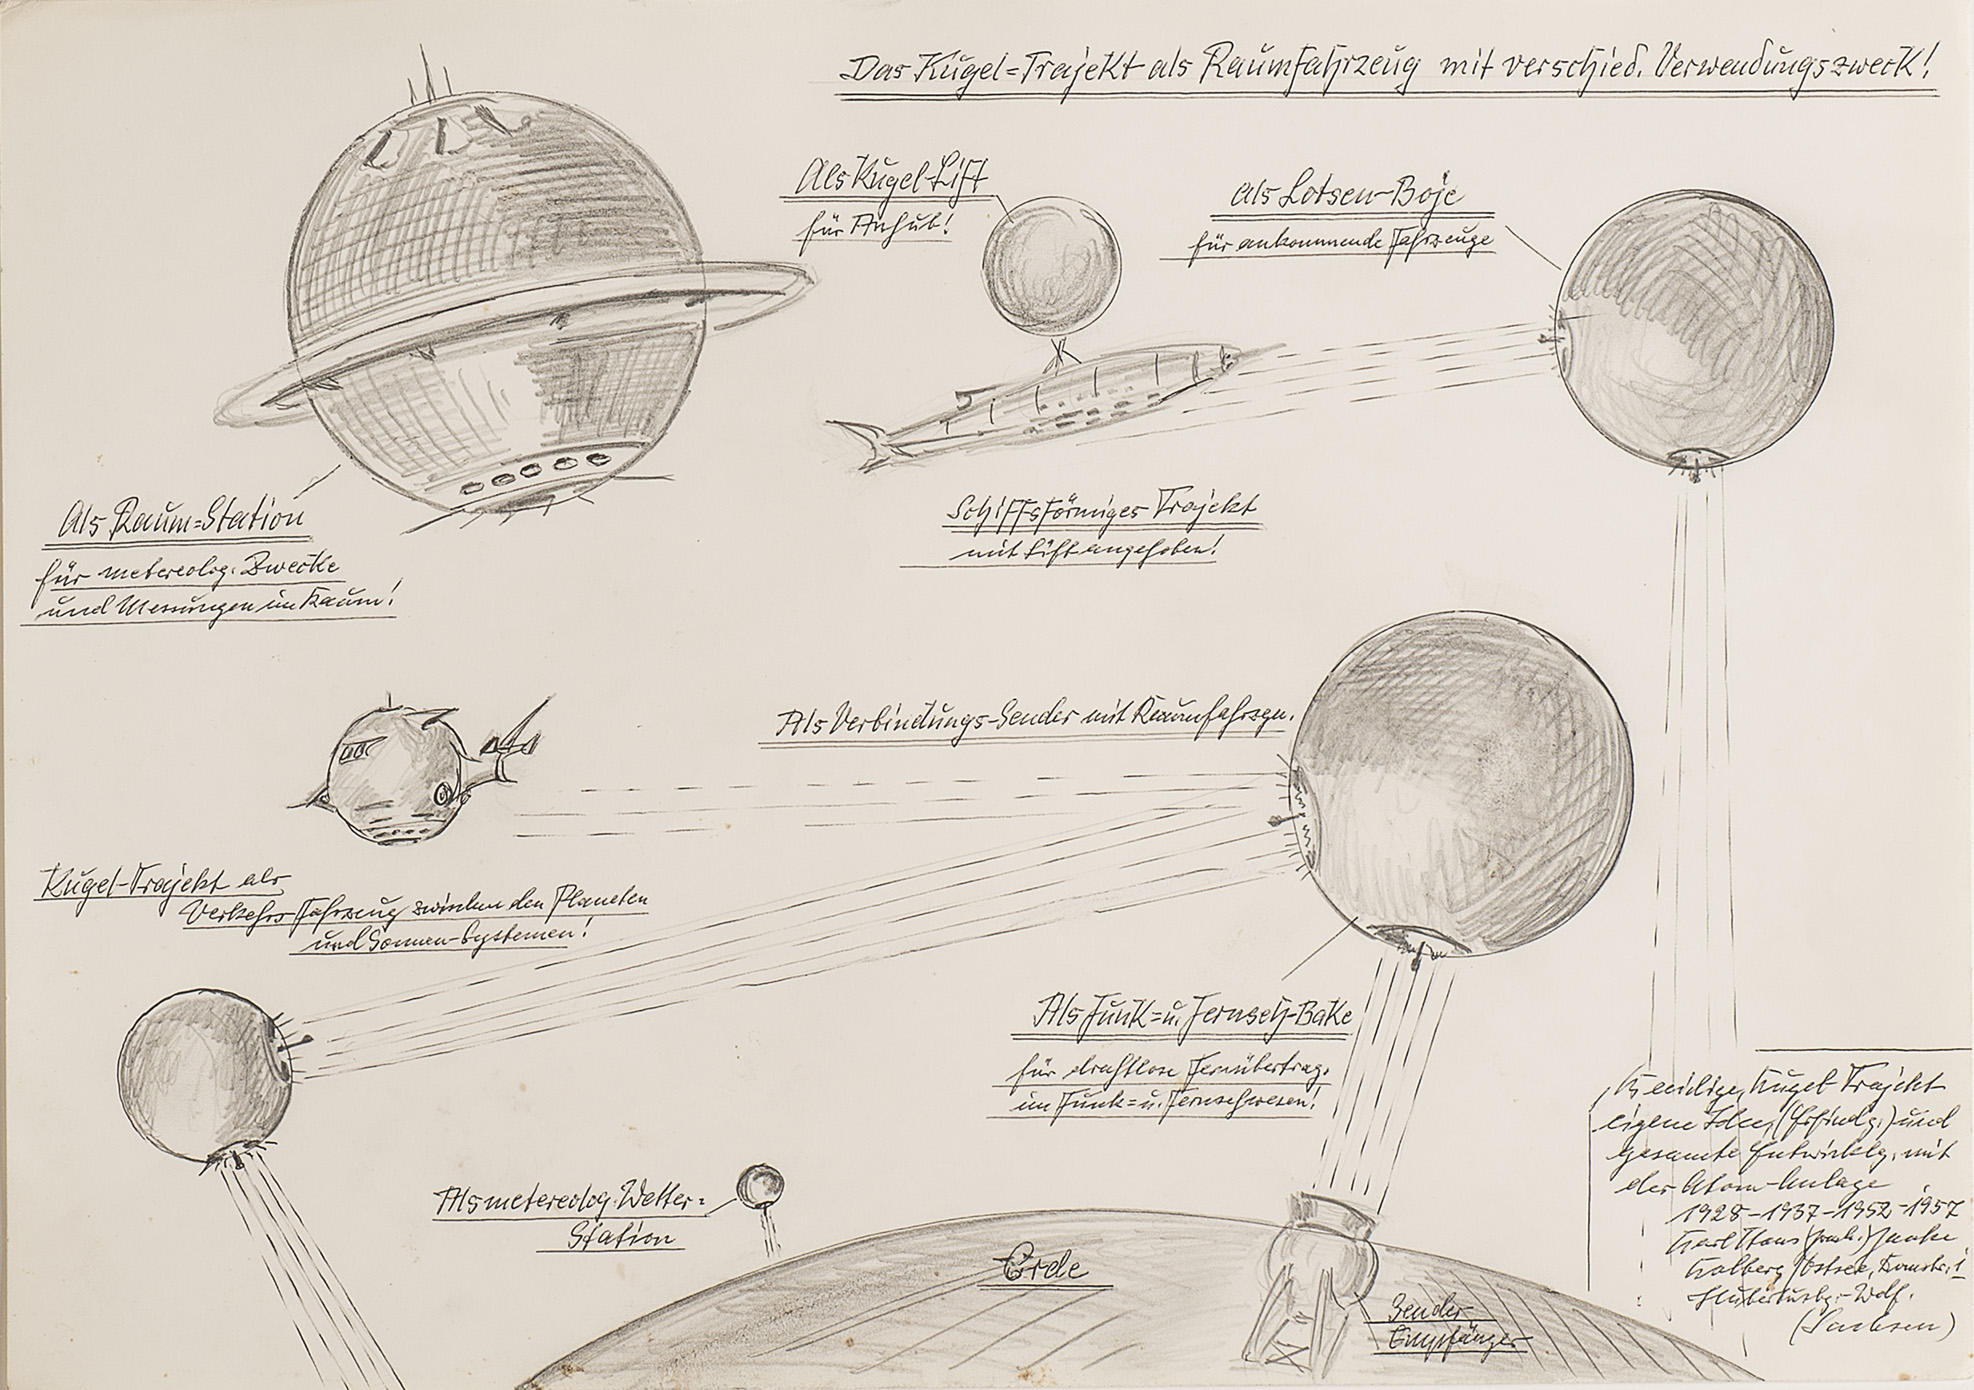 Das Kugel=Trajekt als Raumfahrzeug mit verschied. Verwendungszweck!
Als Kugel-Lift
für Anhub!
als Lotsen-Boje
für ankommende Fahrzeuge
Als Raum=Station
für metereolog. Zwecke
und Messungen im Raum!
Schiffsförmiges Trajekt
mit Lift angehoben!
Als Verbindungs-Sender mit Raumfahrzgn.
Kugel-Trajekt als
Verkehrs-Fahrzeug zwischen den Planeten
und Sonnen-Systemen!
Als Funk=u. Fernseh-Bake
für drahtlose Fernübertrag.
im Funk=u. Fernsehwesen!
Als metereolog. Wetter=
Station
Erde
Sender
Empfänger
Kugel-Trajekt
eigene Idee, (Erfindg.) und
gesamte Entwicklg. mit
der Atom-Anlage
1928-1937-1952-1957
Karl Hans Janke
Kolberg/Ostsee,
Hubertusbg.-Wdf.
(Sachsen)